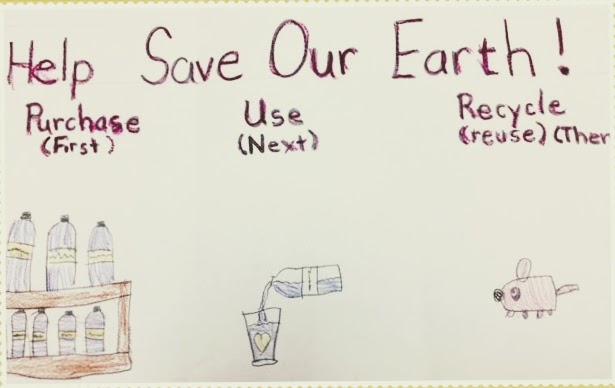 Help Save Our Earth!
Purchase Use Recycle
(First) (Next) (reuse) (Ther